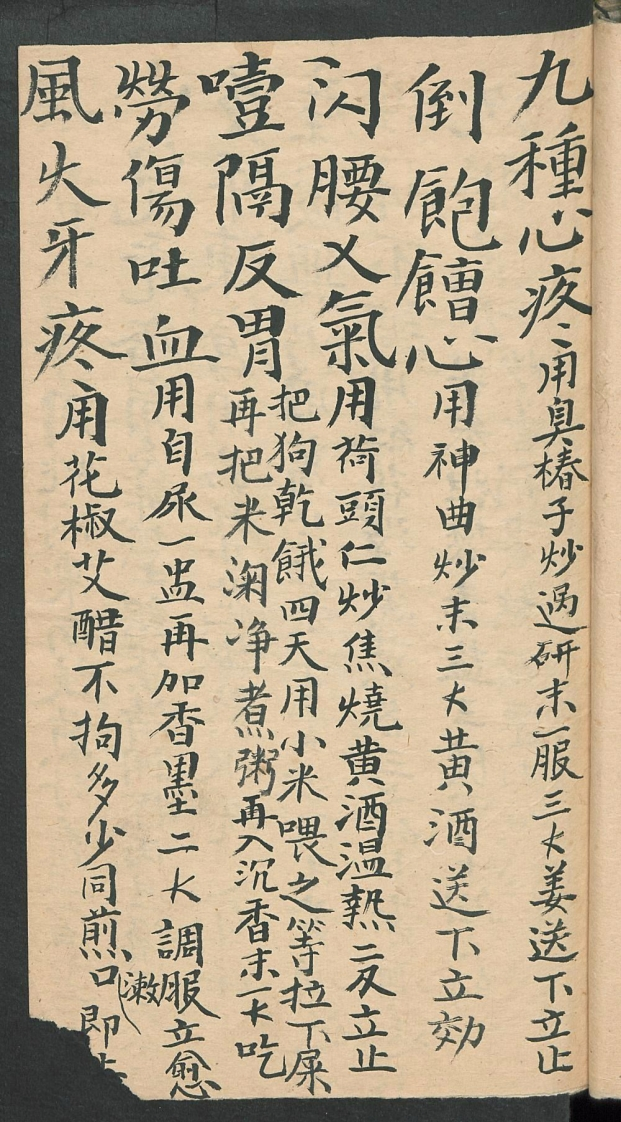 九種心疼用臭椿子炒过研末一服三大姜送下立止
倒飽饋心用神曲炒末三大黄酒送下立効
閃腰义氣用荷頭仁炒焦燒黄酒温熱二及立止
噎隔反胃把狗乾餓四天用小米喂之等拉下屎
再把米淘净煮粥再入沉香末一大吃
勞傷吐血用自尿一盅再加香墨二大調服立愈
風火牙疼用花椒艾醋不拘多少同煎漱口即